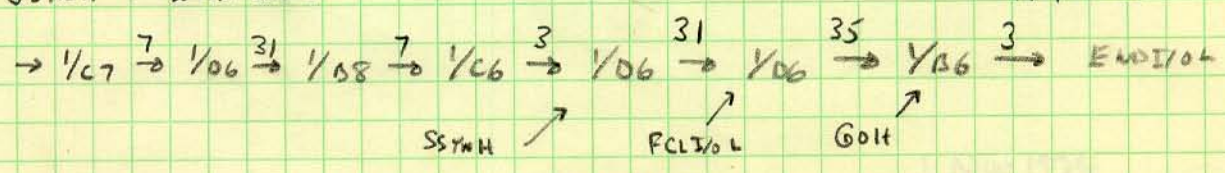 → 1/C7 7→ 1/D6 31→ 1/B8 7→ 1/C6 3→ 1/D6 31→ 1/D6 35→ 1/B6 3→ ENDI/OL
SSYNH FCLI/OL GOH